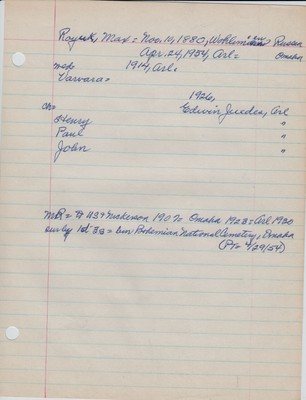 Royuk, Max = Nov. 14, 1880, Russia
Apr. 24, 1954, Arl = Omaha
1914, Arl =
Varvara =
1926,
ch = Edwin Juedes, Arl
Henry "
Paul "
John "
Nickerson 1907 = Omaha 1923 = Arl 1930
early 1st = bur Bohemian National Cemetery, Omaha
(Pt = 4/29/54)